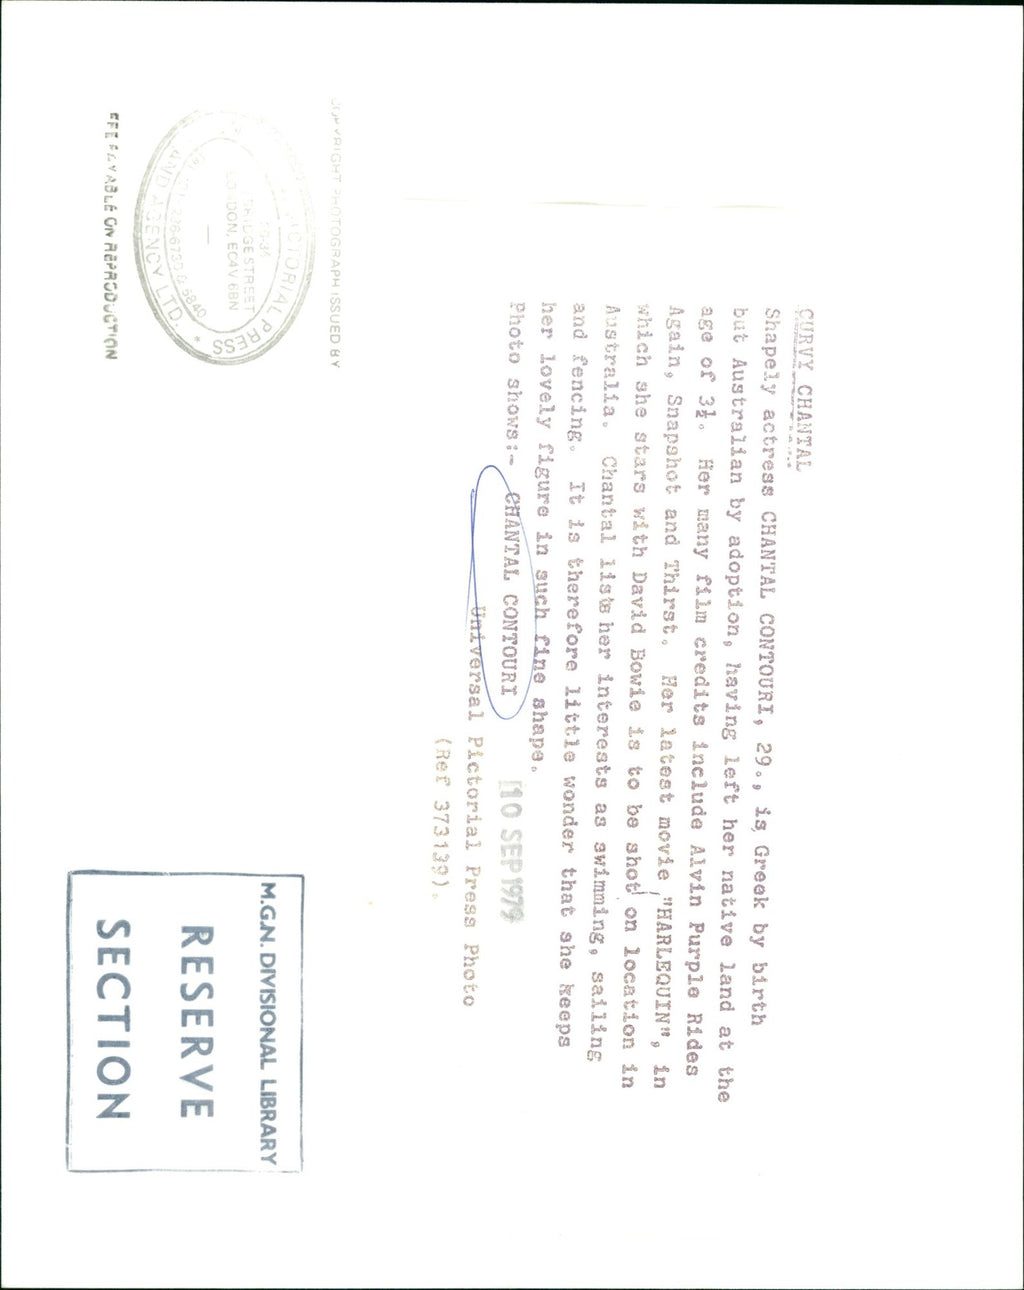 CURVY CHANTAL
Shapely actress CHANTAL CONTOURI, 29., is Greek by birth
but Australian by adoption, having left her native land at the
age of 3½. Her many film credits include Alvin Purple Rides
Again, Snapshot and Thirst. Her latest movie "HARLEQUIN", in
which she stars with David Bowie is to be shot on location in
Australia. Chantal lists her interests as swimming, sailing
and fencing. It is therefore little wonder that she keeps
her lovely figure in such fine shape.
Photo shows:- CHANTAL CONTOURI
10 SEP 1979
Universal Pictorial Press Photo
(Ref 373139).
COPYRIGHT PHOTOGRAPH ISSUED BY
PICTORIAL PRESS
AND AGENCY LTD. *
BRIDGE STREET
LONDON, EC4V 6BN
FEE PAYABLE ON REPRODUCTION
M.G.N. DIVISIONAL LIBRARY
RESERVE
SECTION